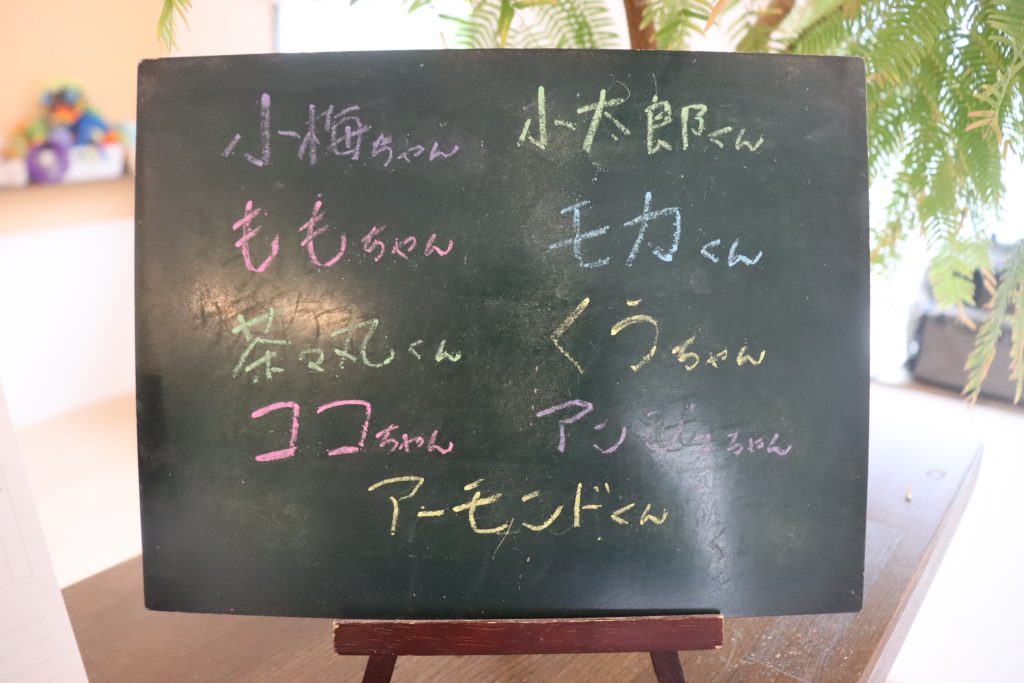 小梅ちゃん 小太郎くん
ももちゃん モカくん
茶々丸くん くうちゃん
ココちゃん アンジュちゃん
アーモンドくん